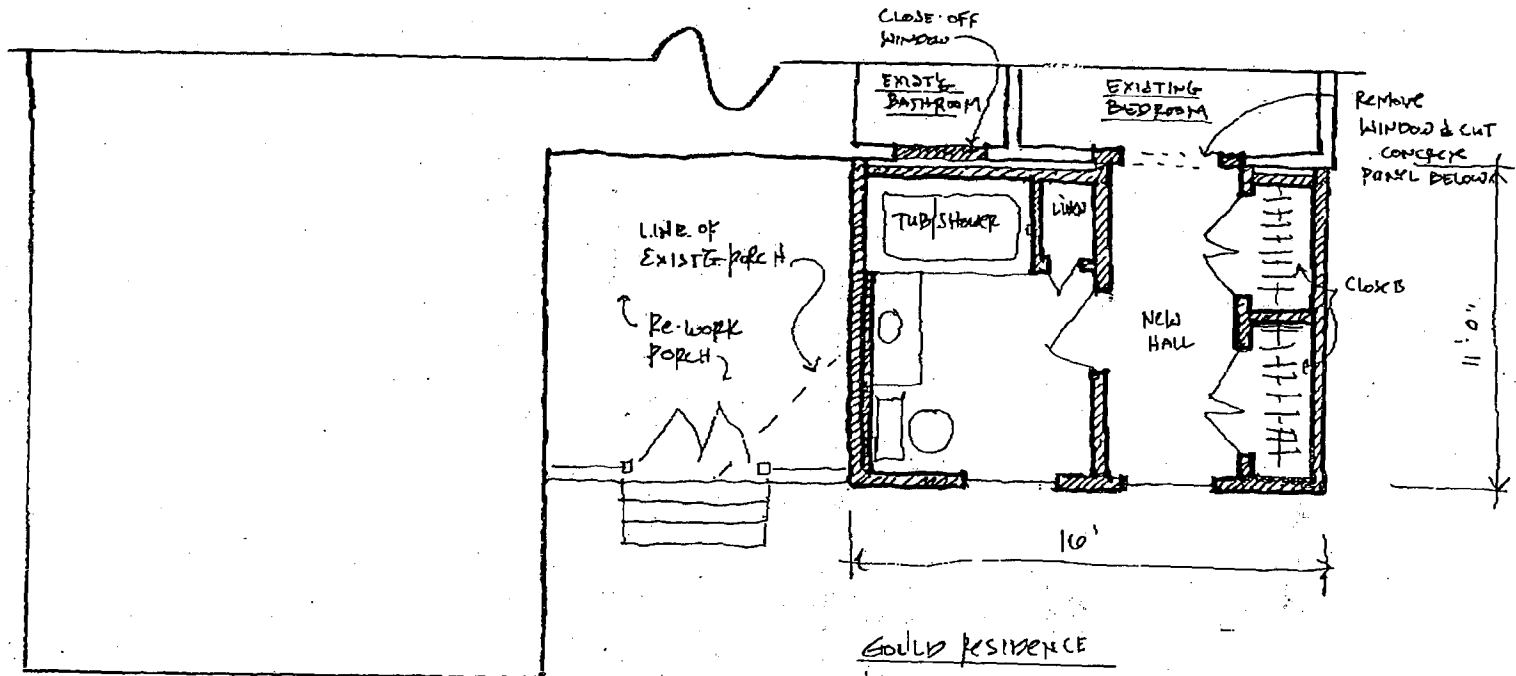 CLOSE OFF
WINDOW
EXIST'G
BATHROOM
EXISTING
BEDROOM
REMOVE
WINDOW & CUT
CONCRETE
PANEL BELOW
LINE OF
EXIST'G PORCH
RE-WORK
PORCH
TUB/SHOWER
LINEN
NEW
HALL
CLOSETS
11'-0"
16'
GOULD RESIDENCE